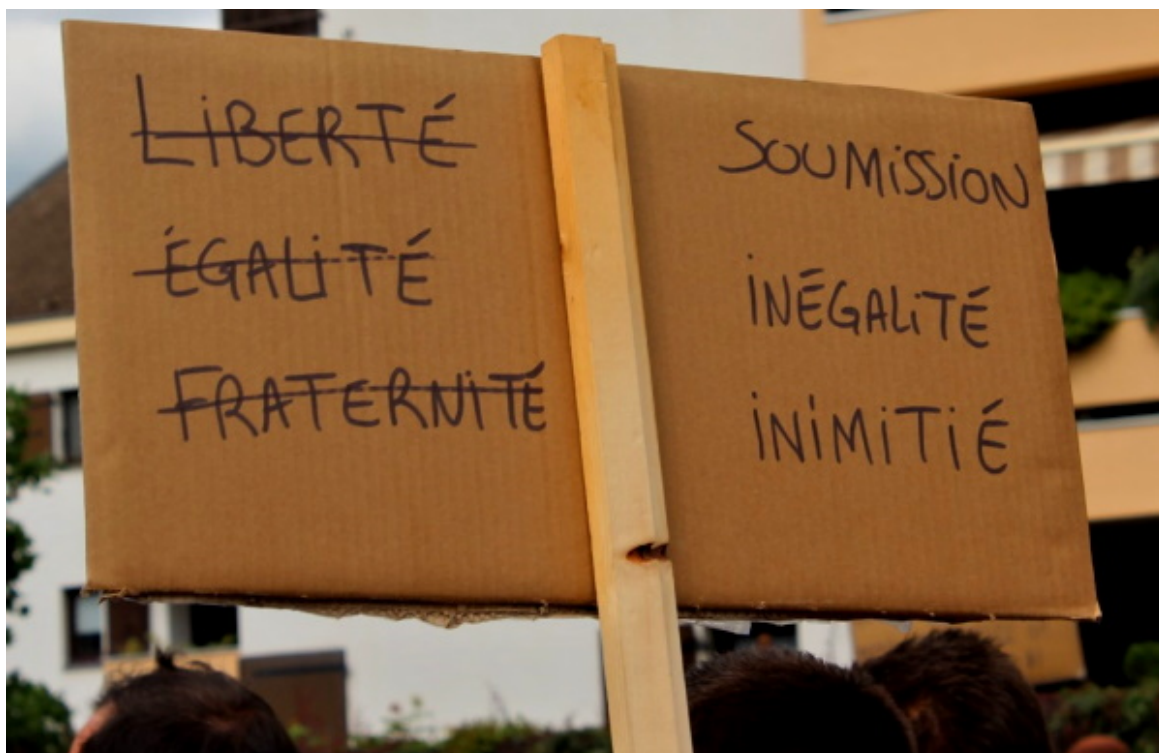 LiBERTÉ
ÉGALiTÉ
FRATERNiTÉ
SOUMiSSiON
iNÉGALiTÉ
iNiMiTiÉ